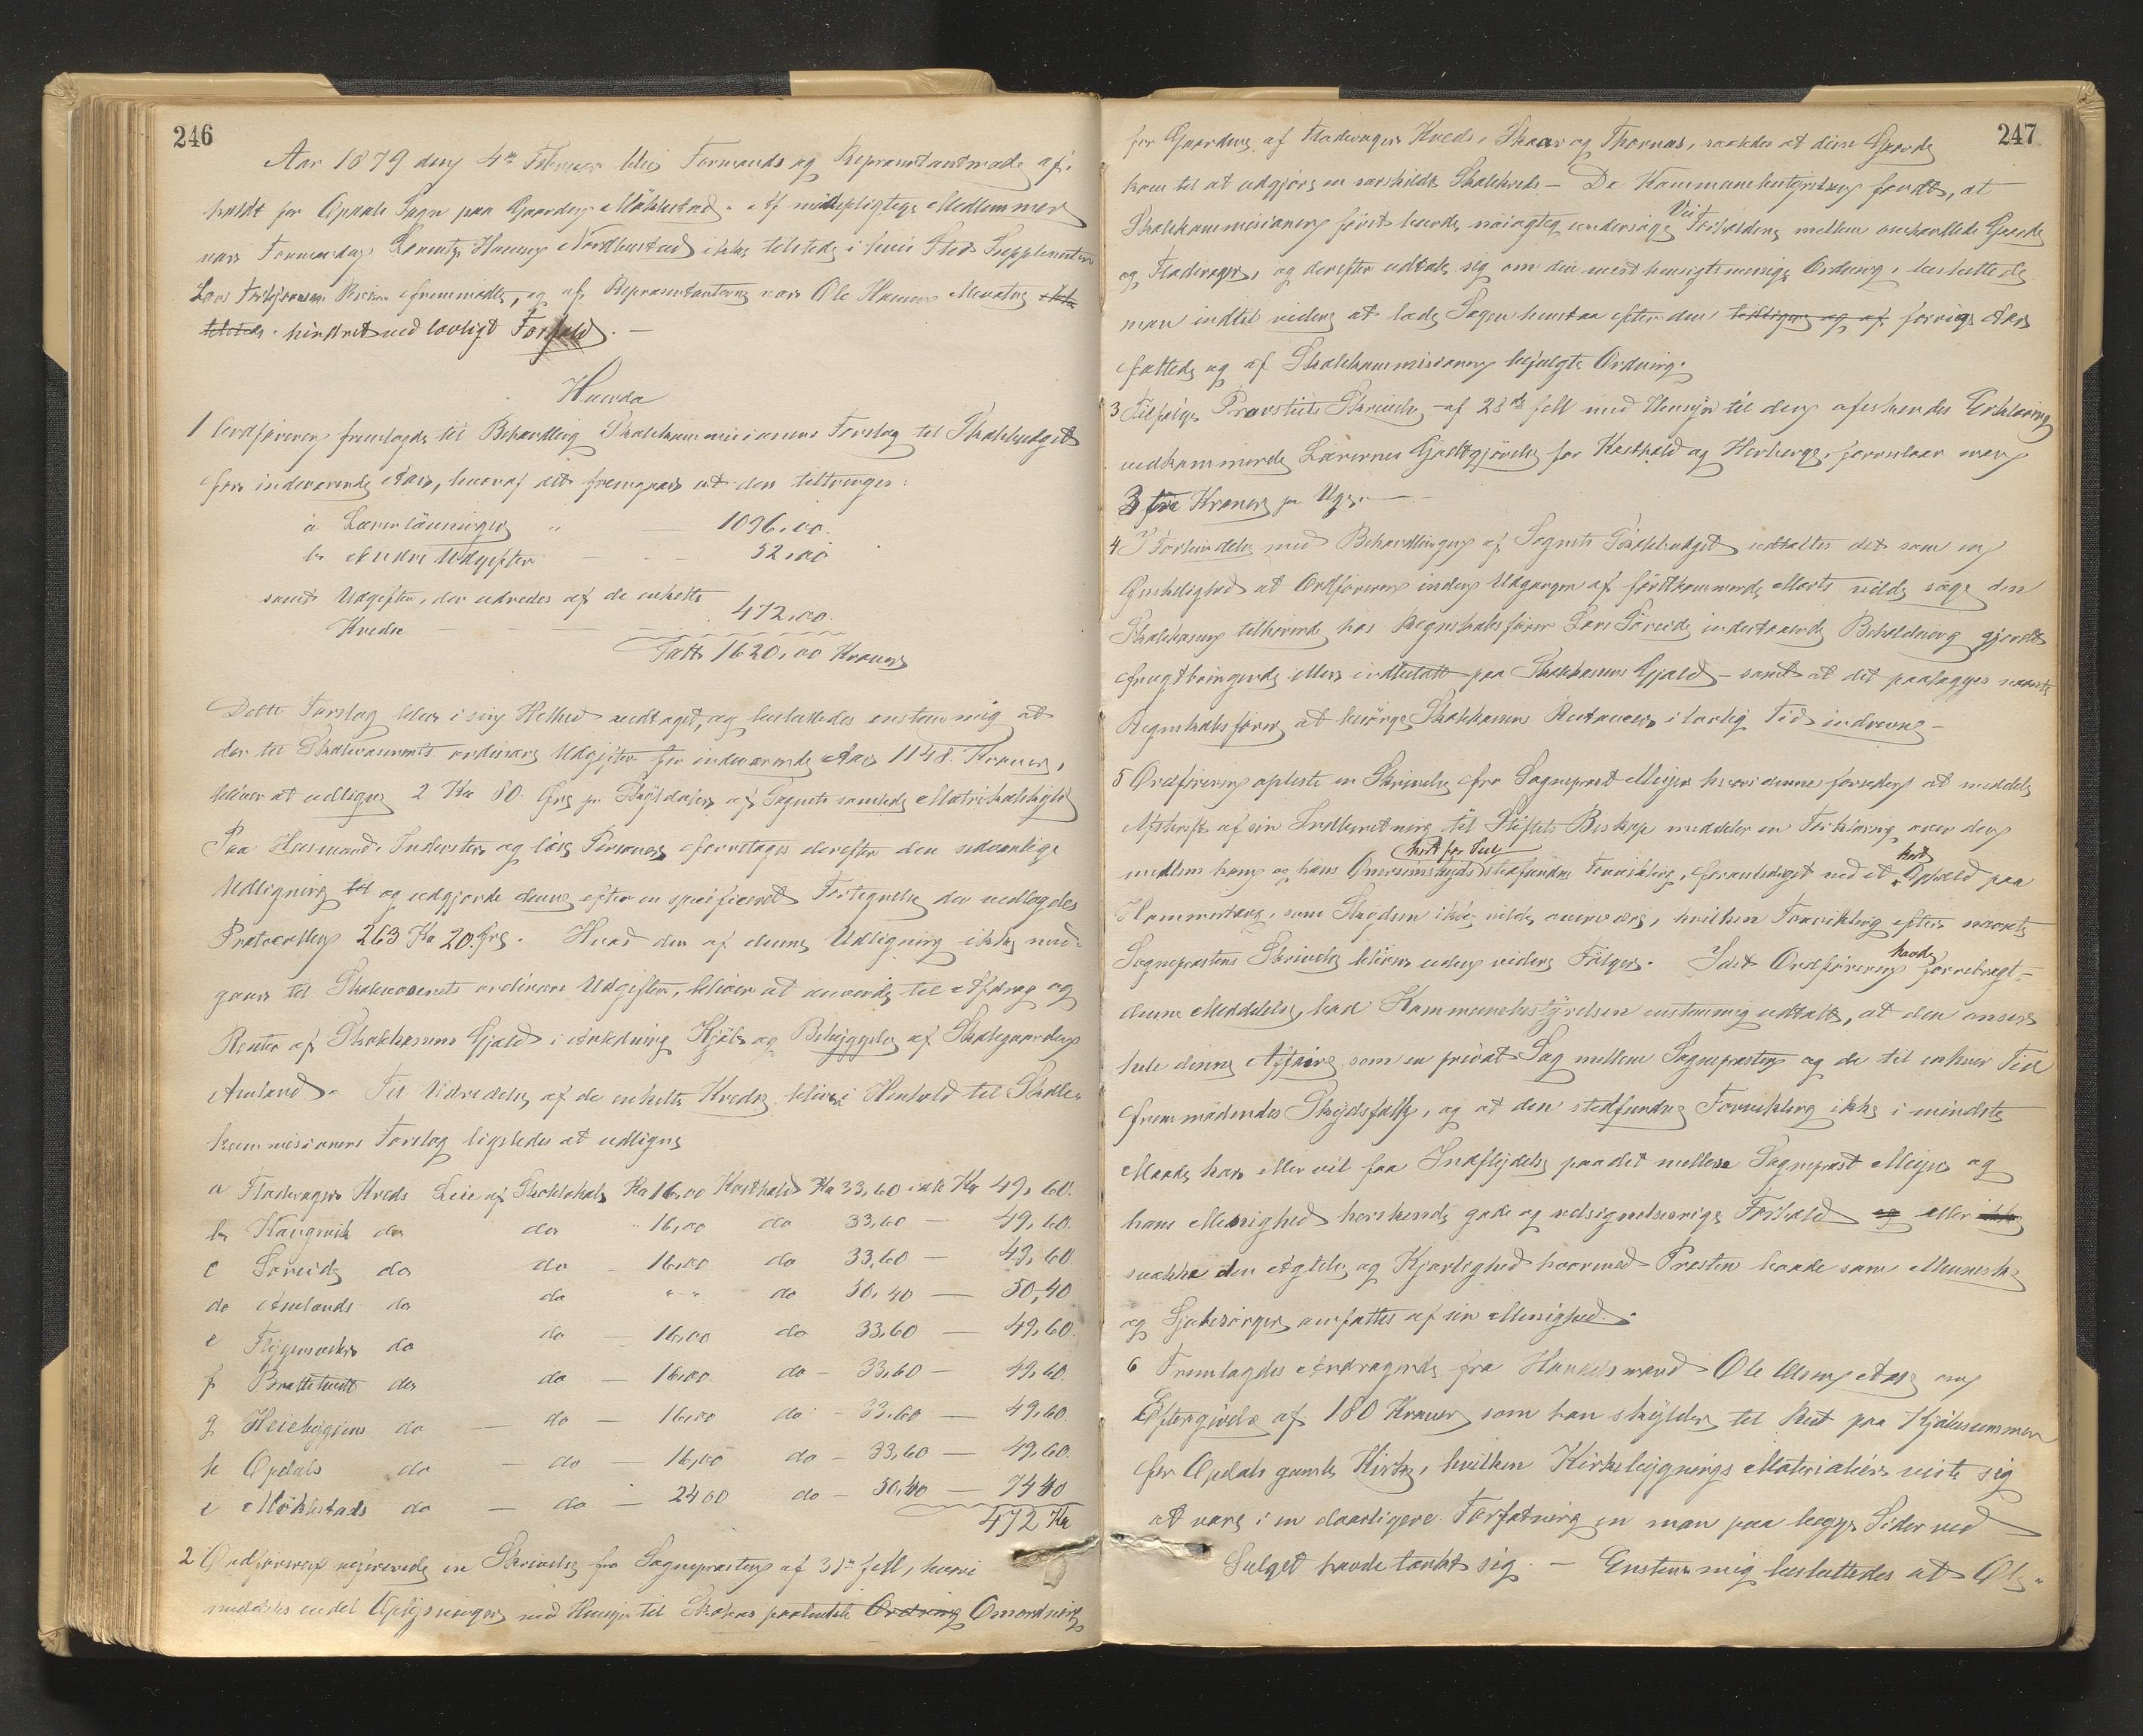 246
Aar 1879 den 4de Februar blev Formands og Repræsentantmøde af-
holdt for Opdals Sogn paa Gaarden Møklestad. Af mødepligtige Medlemmer
var Formanden Hansen ikke tilstede i hvis Sted Supplianten
Lars fremmødte, og af Repræsentanterne var Ole Hansen ikke
tilstede. hindret ved lovligt Forfald. —
Hvorda
1 Ordføreren fremlagde til Behandling Skolekommissionens Forslag til Skolebudget
for indeværende Aar, hvoraf det fremgaar at der tiltrænges:
a Lærerlønninger " — 1096,00.
b Andre Udgifter — - 52,00
samt Udgifter, der udredes af de enkelte
Kredse — — 472,00.
Tils 1620,00 Kroner
Dette Forslag blev i sin Helhed vedtaget, og besluttedes enstemmig at
der til Skolevæsenets ordinære Udgifter for indeværende Aar 1148 Kroner,
bliver at udligne 2 Kr 80. Øre pr. Skylddaler af Sognets samlede Matrikulskyld
Paa Husmænd, Inderster og løse Personer foretages derefter den sedvanlige
Udligning til og udgjorde denne efter en specificeret Fortegnelse der vedlagdes
Protocollen 263 Kr 20. Øre. Hvad der af denne Udligning ikke med-
gaar til Skolevæsenets ordinære Udgifter, bliver at anvende til Afdrag og
Renter af Skolekassens Gjæld i Anledning Kjøb og Bebyggelse af Skolegaarden
Amland. Til Udredelse af de enkelte Kredse bliver i Henhold til Skole-
kommissionens Forslag ligeledes at udligne
a Fladevager Kreds Leie af Skolelokale Kr 16,00 Kosthold Kr 33,60 ialt Kr 49,60.
b Kaugvik do do " 16,00 do 33,60 — 49,60.
c Søreide do do - 16,00 do 33,60 — 49,60
do Amlands do do " - " do 50,40 — 50,40
e do do — 16,00 do 33,60 — 49,60.
f Brattetveit do do — 16,00 do - 33,60 — 49,60.
g do — do — 16,00 do - 33,60 — 49,60.
h Opdals do — do — 16,00 do - 33,60 — 49,60.
i Møklestads do — do — 24 00 do — 50,40 — 74 40
472 Kr
2 Ordføreren refererede en Skrivelse fra Sognepresten af 31te f M, hvori
meddeles endel Oplysninger med Hensyn til Skolens paatænkte Ordning Omordning
247
for Gaardene af Fladevager Kreds, Skaar og Thornes, saaledes at disse Gaarde
kom til at udgjøre en særskildt Skolekreds — Da Kommunebestyrelsen fandt, at
Skolekommissionen først burde nøiagtig undersøge Vei Forholdene mellem omhandlede Gaarde
og Fladevager, og derefter udtale sig om den mest hensigtsmæssige Ordning, besluttede
man indtil videre at lade Sagen henstaa efter den tidligere og af forrige Aar
fattede og af Skolekommissionen befulgte Ordning.
3 Tilfølge Provstiets Skrivelse af 28de f M med Hensyn til den afæskende Erklæring
vedkommende Lærernes Godtgjørelse for Kosthold og Herberge, foreslaar man
3 tre Kroner pr Uge. —
4 I Forbindelse med Behandlingen af Sognets Skolebudget udtaltes det som en
Ønskelighed at Ordføreren inden Udgangen af førstkommende Marts vilde søge den
Skolekassen tilhørende hos Regnskabsfører Lars Søreide indestaaende Beholdning gjordt
frugtbringende eller indbetalt paa Skolekassens Gjæld — samt at det paalægges næste
Regnskabsfører at besørge Skolekassens Restancer i lovlig Tid inddrevne —
5 Ordføreren oplæste en Skrivelse fra Sogneprest Meyer hvori denne foruden at meddele
Afskrift af sin Indberetning til Stiftets Biskop meddeler en Forklaring over den
mellem ham og hans kort før Jul stedfundne Forvikling, foranlediget ved et kort Ophold paa
Hammerberg, som Skydsen ikke vilde overvære, hvilken Forvikling efter nævnte
Sogneprestens Skrivelse bliver uden videre Følger. Idet Ordføreren havde forebragt
denne Meddelelse, lod Kommunebestyrelsen enstemmig udtalt, at den ansees
hele denne Affaire som en privat Sag mellem Sognepresten og de til enhver Tid
fremmødendes Skydsfolk, og at den stedfundne Forvikling ikke i mindste
Maade har eller vil faa Indflydelse paa det mellem Sogneprest Meyer og
hans Menighed herskende gode og velsignelsesrige Forhold og eller ikke
svække den Agtelse og Kjærlighed hvormed Presten baade som Menneske
og Sjælesørger omfattes af sin Menighed.
6 Fremlagdes Andragende fra Handelsmand Ole Olsen Aase om
Eftergivelse af 180 Kroner som han skylder til Rest paa Kjøbesummen
for Opdals gamle Kirke, hvilken Kirkebygnings Materialier viste sig
at være i en daarligere Forfatning en man paa begge Sider ved
Salget havde tænkt sig. — Enstemmig besluttedes at Ole